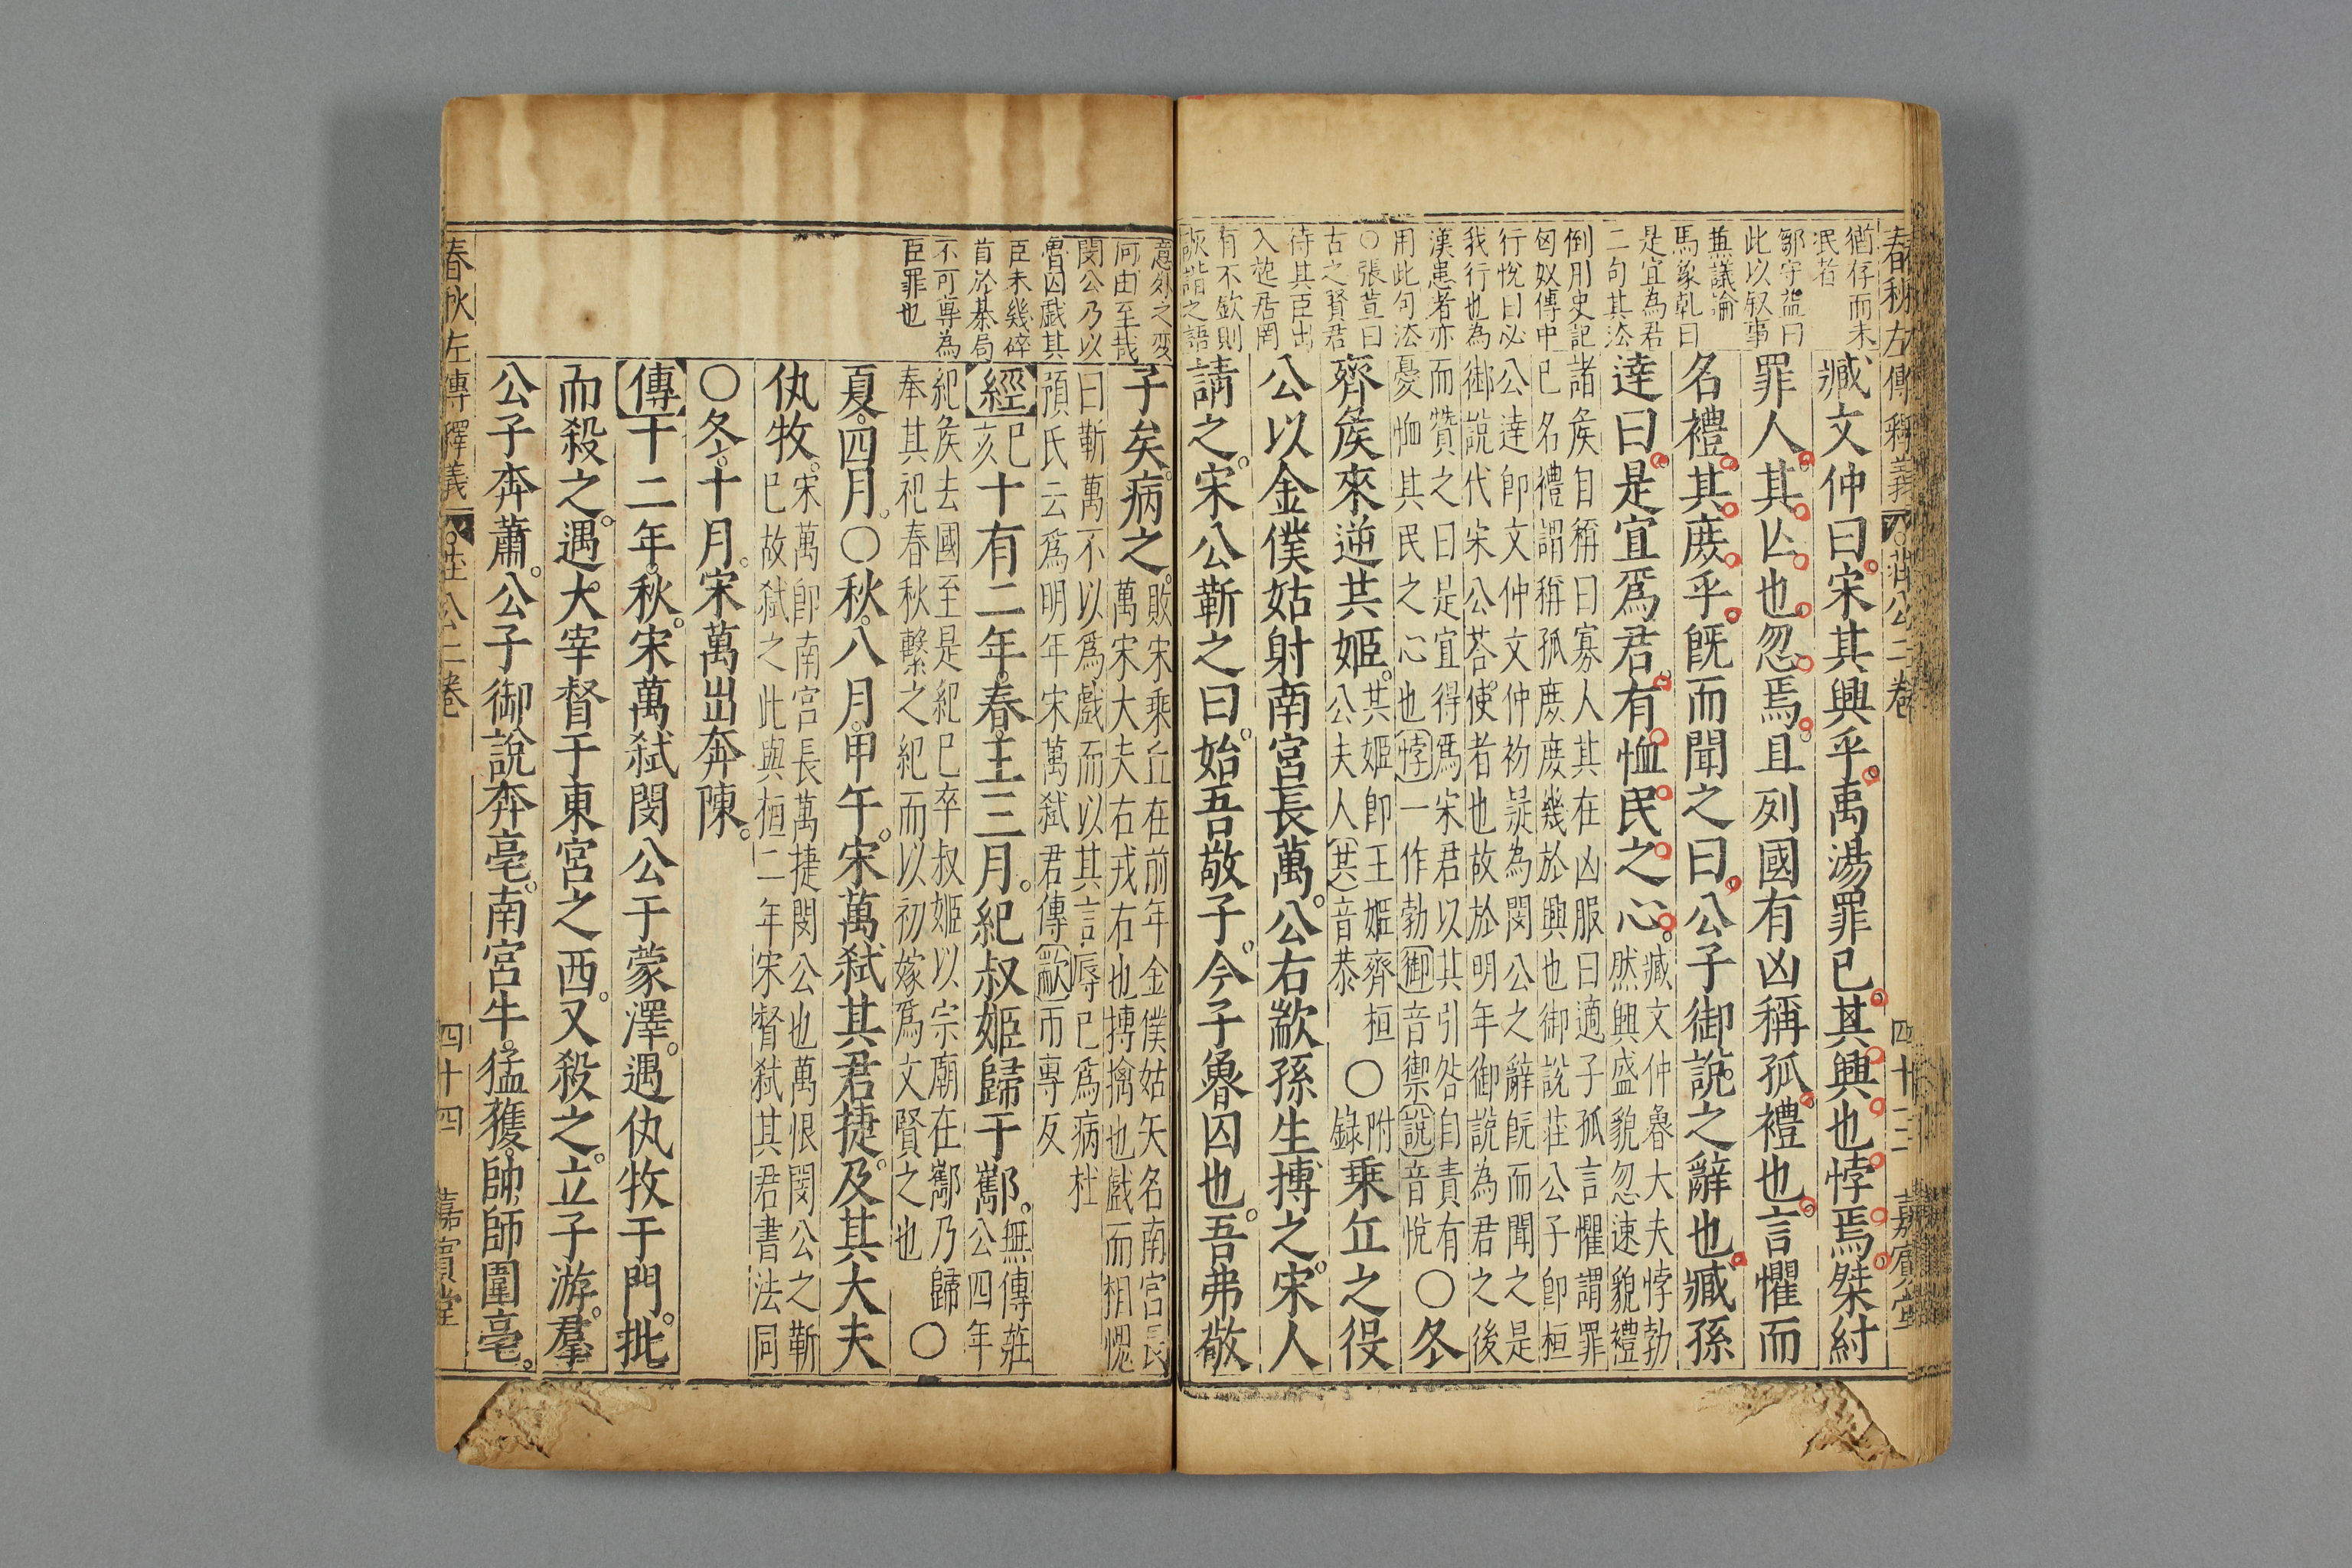 春秋左傳釋義
莊公二卷
四十三
嘉賓堂
猶存而未
泯者
鄒守益曰
此以叙事
兼議論
馬象乹曰
是宜為君
二句其法
倒用史記
匈奴傳中
行悅曰必
我行也為
漢患者亦
用此句法
○張萱曰
古之賢君
待其臣出
入起居罔
有不欽則
詼諧之語
臧文仲曰宋其興乎禹湯罪已其興也悖焉桀紂
罪人其亾也忽焉且列國有凶稱孤禮也言懼而
名禮其庶乎旣而聞之曰公子御說之辭也臧孫
逹曰是宜爲君有恤民之心
臧文仲魯大夫悖勃
然興盛貌忽速貌禮
諸矦自稱曰寡人其在凶服曰適子孤言懼謂罪
已名禮謂稱孤庶庶幾於興也御說莊公子卽桓
公逹卽文仲文仲初疑為閔公之辭旣而聞之是
御說代宋公荅使者也故於明年御說為君之後
而贊之曰是宜得爲宋君以其引咎自責有
憂恤其民之心也悖一作勃御音禦說音悅
○冬
齊矦來逆共姬
共姬卽王姬齊桓
公夫人共音恭
○
附
錄
乗丘之役
公以金僕姑射南宮長萬公右歂孫生搏之宋人
請之宋公靳之曰始吾敬子今子魯囚也吾弗敬
意外之変
何由至哉
閔公乃以
魯囚戲其
臣未幾碎
首於棊局
不可專為
臣罪也
子矣病之
敗宋乗丘在前年金僕姑矢名南宮長
萬宋大夫右戎右也搏擒也戲而相愧
曰靳萬不以爲戲而以其言辱已爲病杜
預氏云爲明年宋萬弑君傳歂市專反
經
已
亥
十有二年春王三月紀叔姬歸于酅
無傳莊
公四年
紀矦去國至是紀已卒叔姬以宗廟在酅乃歸
奉其祀春秋繫之紀而以初嫁爲文賢之也
○
夏四月○秋八月甲午宋萬弑其君捷及其大夫
仇牧
宋萬卽南宮長萬捷閔公也萬恨閔公之靳
已故弑之此與桓二年宋督弑其君書法同
○冬十月宋萬出奔陳
傳十二年秋宋萬弑閔公于蒙澤遇仇牧于門批
而殺之遇大宰督于東宮之西又殺之立子游羣
公子奔蕭公子御說奔亳南宮牛猛獲帥師圍亳
春秋左傳釋義
莊公二卷
四十四
嘉賓堂